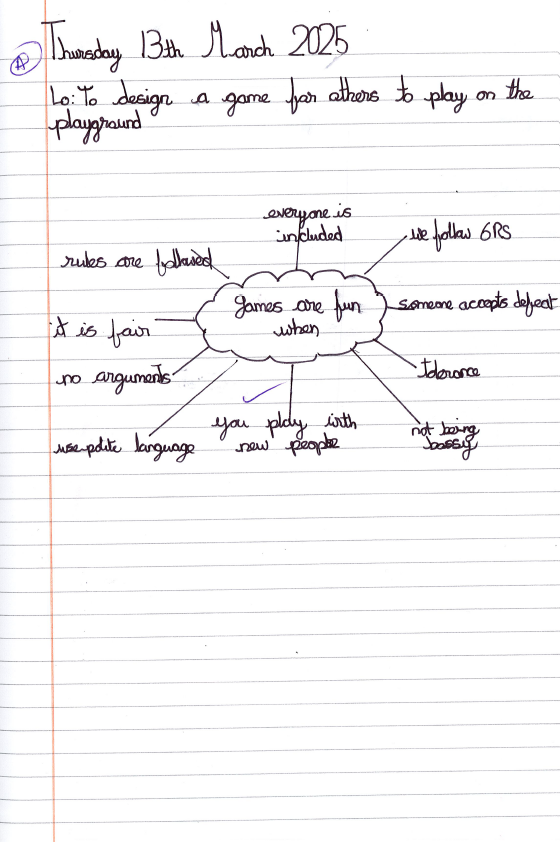 A
Thursday 13th March 2025
LO: To design a game for others to play on the
playground
everyone is
included
we follow 6RS
rules are followed
games are fun
when
someone accepts defeat
it is fair
no arguments
tolerance
you play with
new people
not being
bossy
use polite language